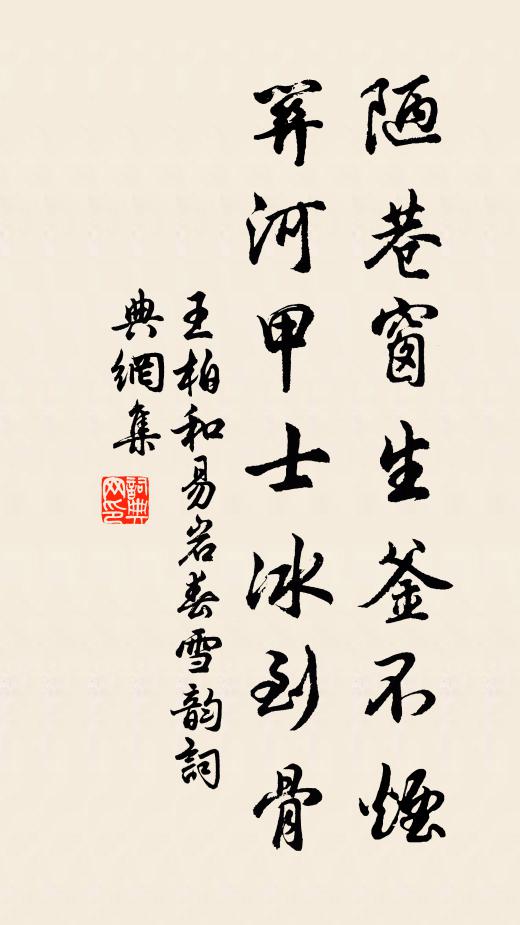 陋巷窗生釜不煙
河甲士冰到骨
王柏和易岩春雪韵詞
典網集
詞典
网印